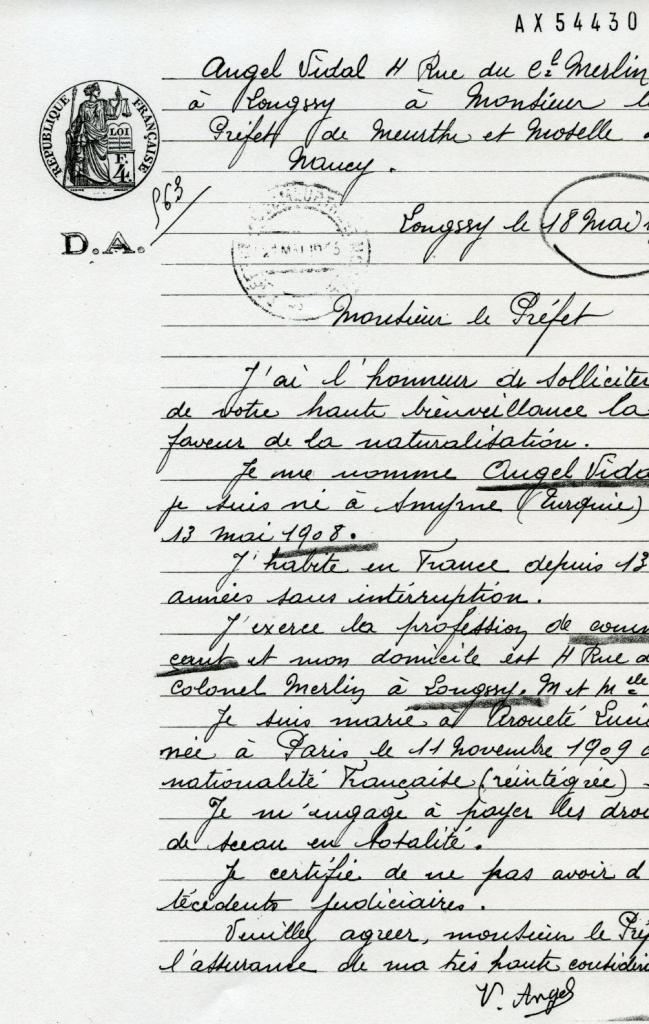 AX 54430
Angel Vidal 4 Rue du Cel Merlin
à Longwy à Monsieur le
Préfet de Meurthe et Moselle
Nancy.
RÉPUBLIQUE FRANÇAISE
LOI
F. 4
963
D.A.
Longwy le 18 Mai
MAI
Monsieur le Préfet
J'ai l'honneur de solliciter
de votre haute bienveillance la
faveur de la naturalisation.
Je me nomme Angel Vida
je suis né à Smyrne (Turquie)
13 mai 1908.
J'habite en France depuis 13
années sans interruption.
J'exerce la profession de comm
cant et mon domicile est 4 Rue d
Colonel Merlin à Longwy. M et Mlle
Je suis marié à Arouété Luci
née à Paris le 11 Novembre 1909 d
nationalité Française (réintégrée)
Je m'engage à payer les droi
de sceau en totalité.
Je certifie de ne pas avoir d
técédents judiciaires.
Veuillez agréer, monsieur le Pré
l'assurance de ma très haute considéra
V. Angel